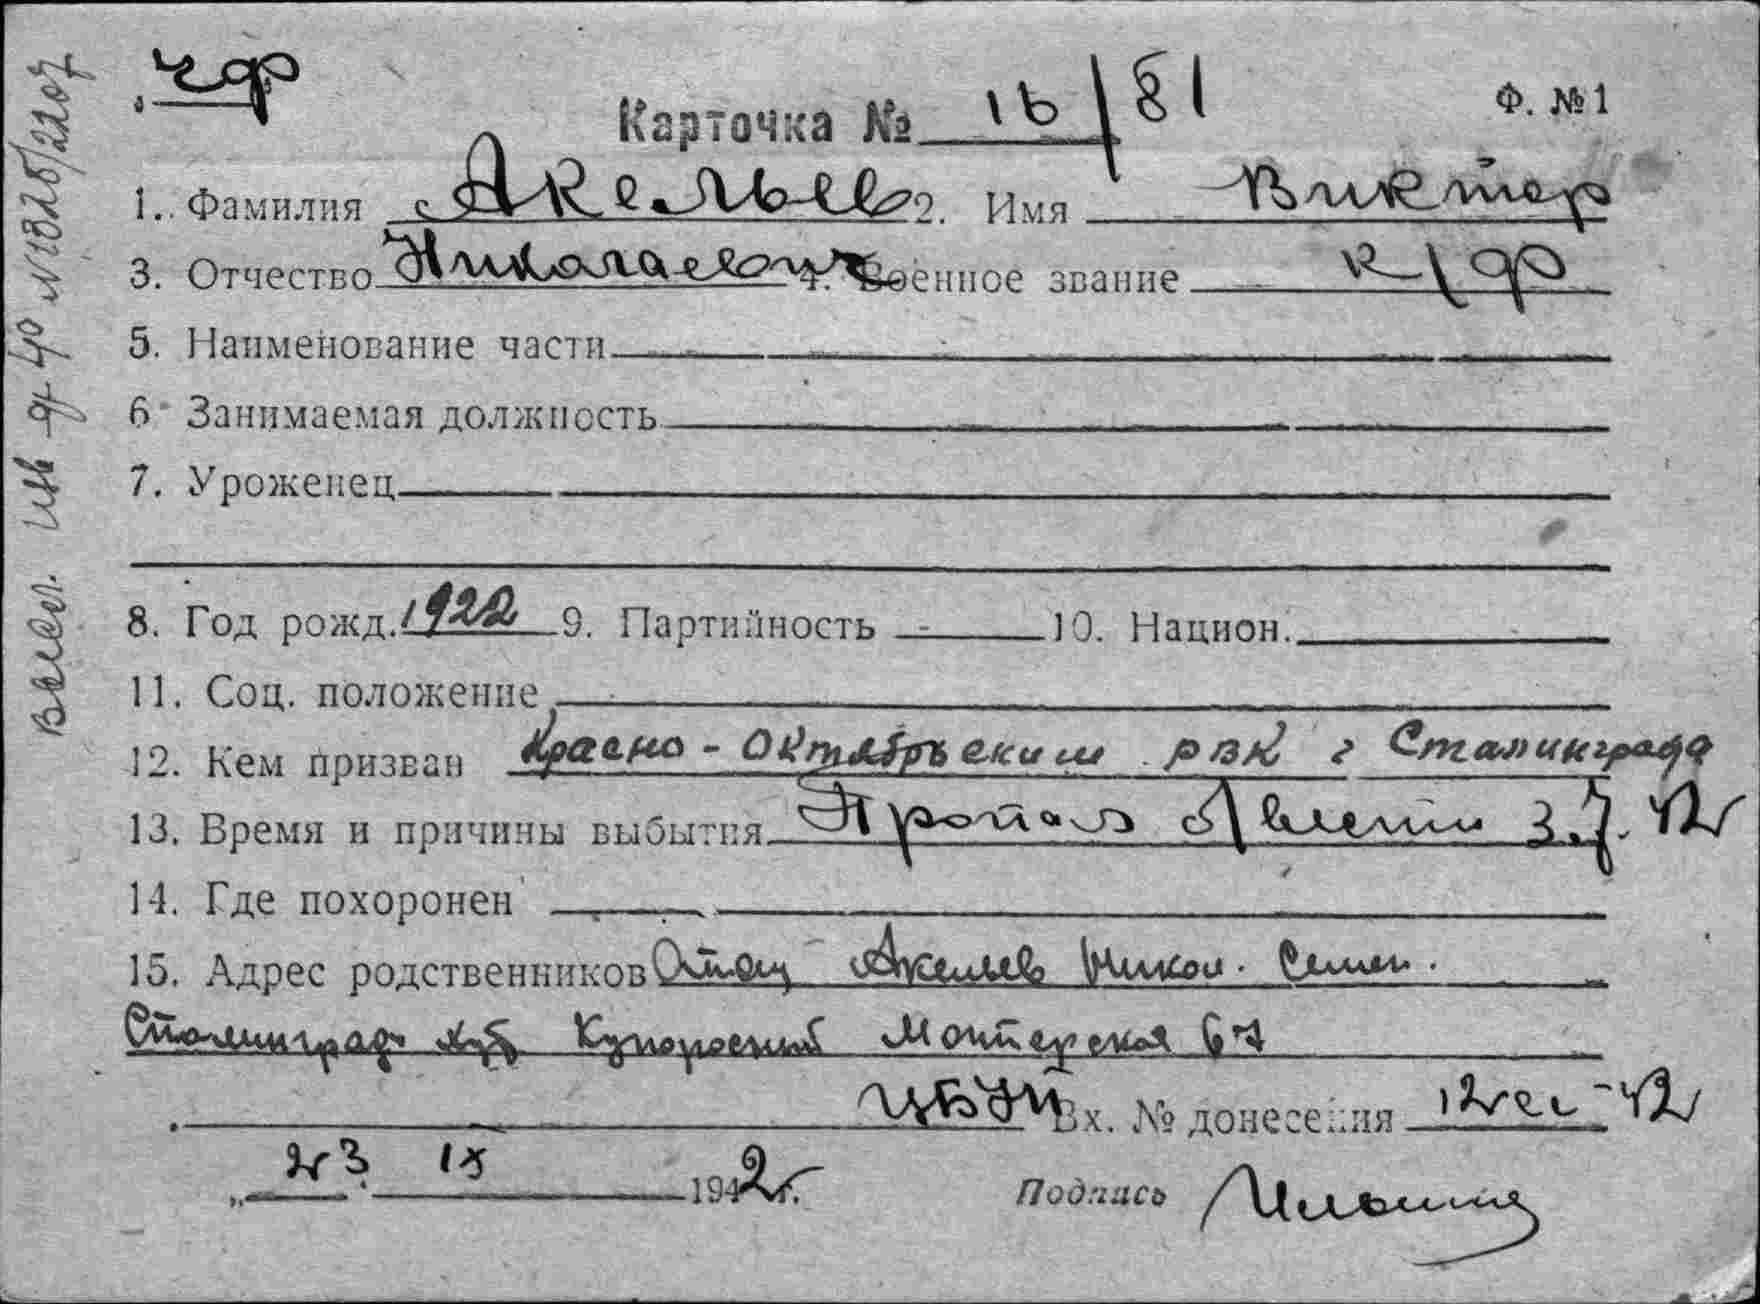 чф
Карточка № 1б/81
Ф. №1
1. Фамилия Акельев 2. Имя Виктор
3. Отчество Николаевич 4. Военное звание к/ф
5. Наименование части
6 Занимаемая должность
7. Уроженец
8. Год рожд. 1922 9. Партийность - 10. Национ.
11. Соц. положение
12. Кем призван Красно-Октябрьским РВК г Сталинграда
13. Время и причины выбытия Пропал б/вести 3.7.42г
14. Где похоронен
15. Адрес родственников Отец Акельев Никол. Семен.
Сталинград Купоросный Монтерская 67
ЦБУП Вх. № донесения 42
„ 23 IX 1942г.
Подпись Ильина